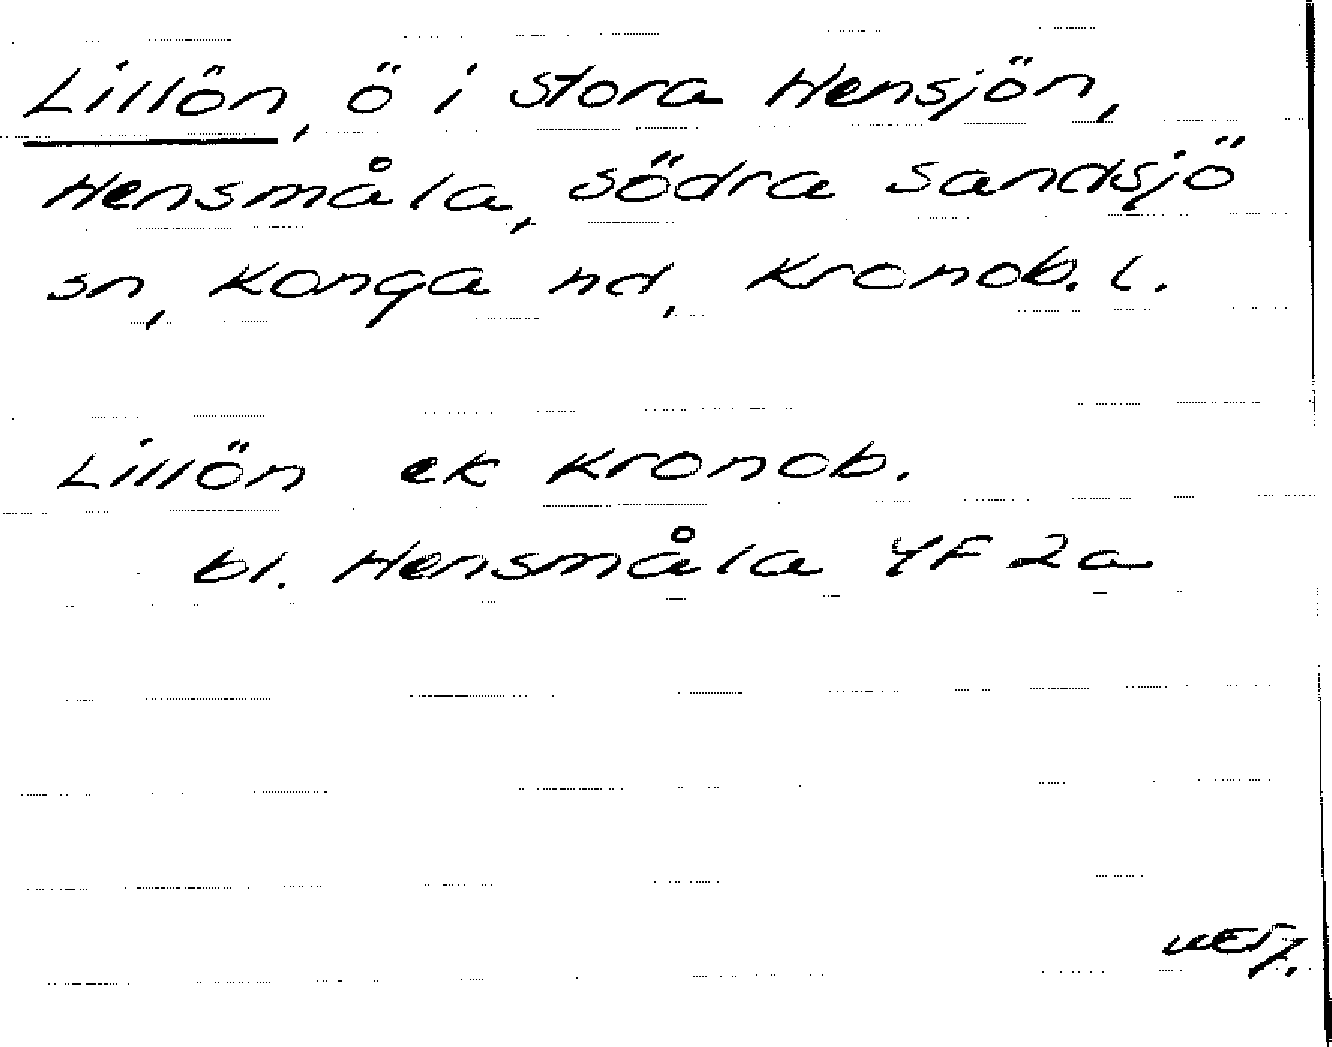 Lillön, ö i Stora Hensjön,
Hensmåla, Södra Sandsjö
sn, Konga hd, Kronob. l.
Lillön ek Kronob.
bl. Hensmåla 4F 2a